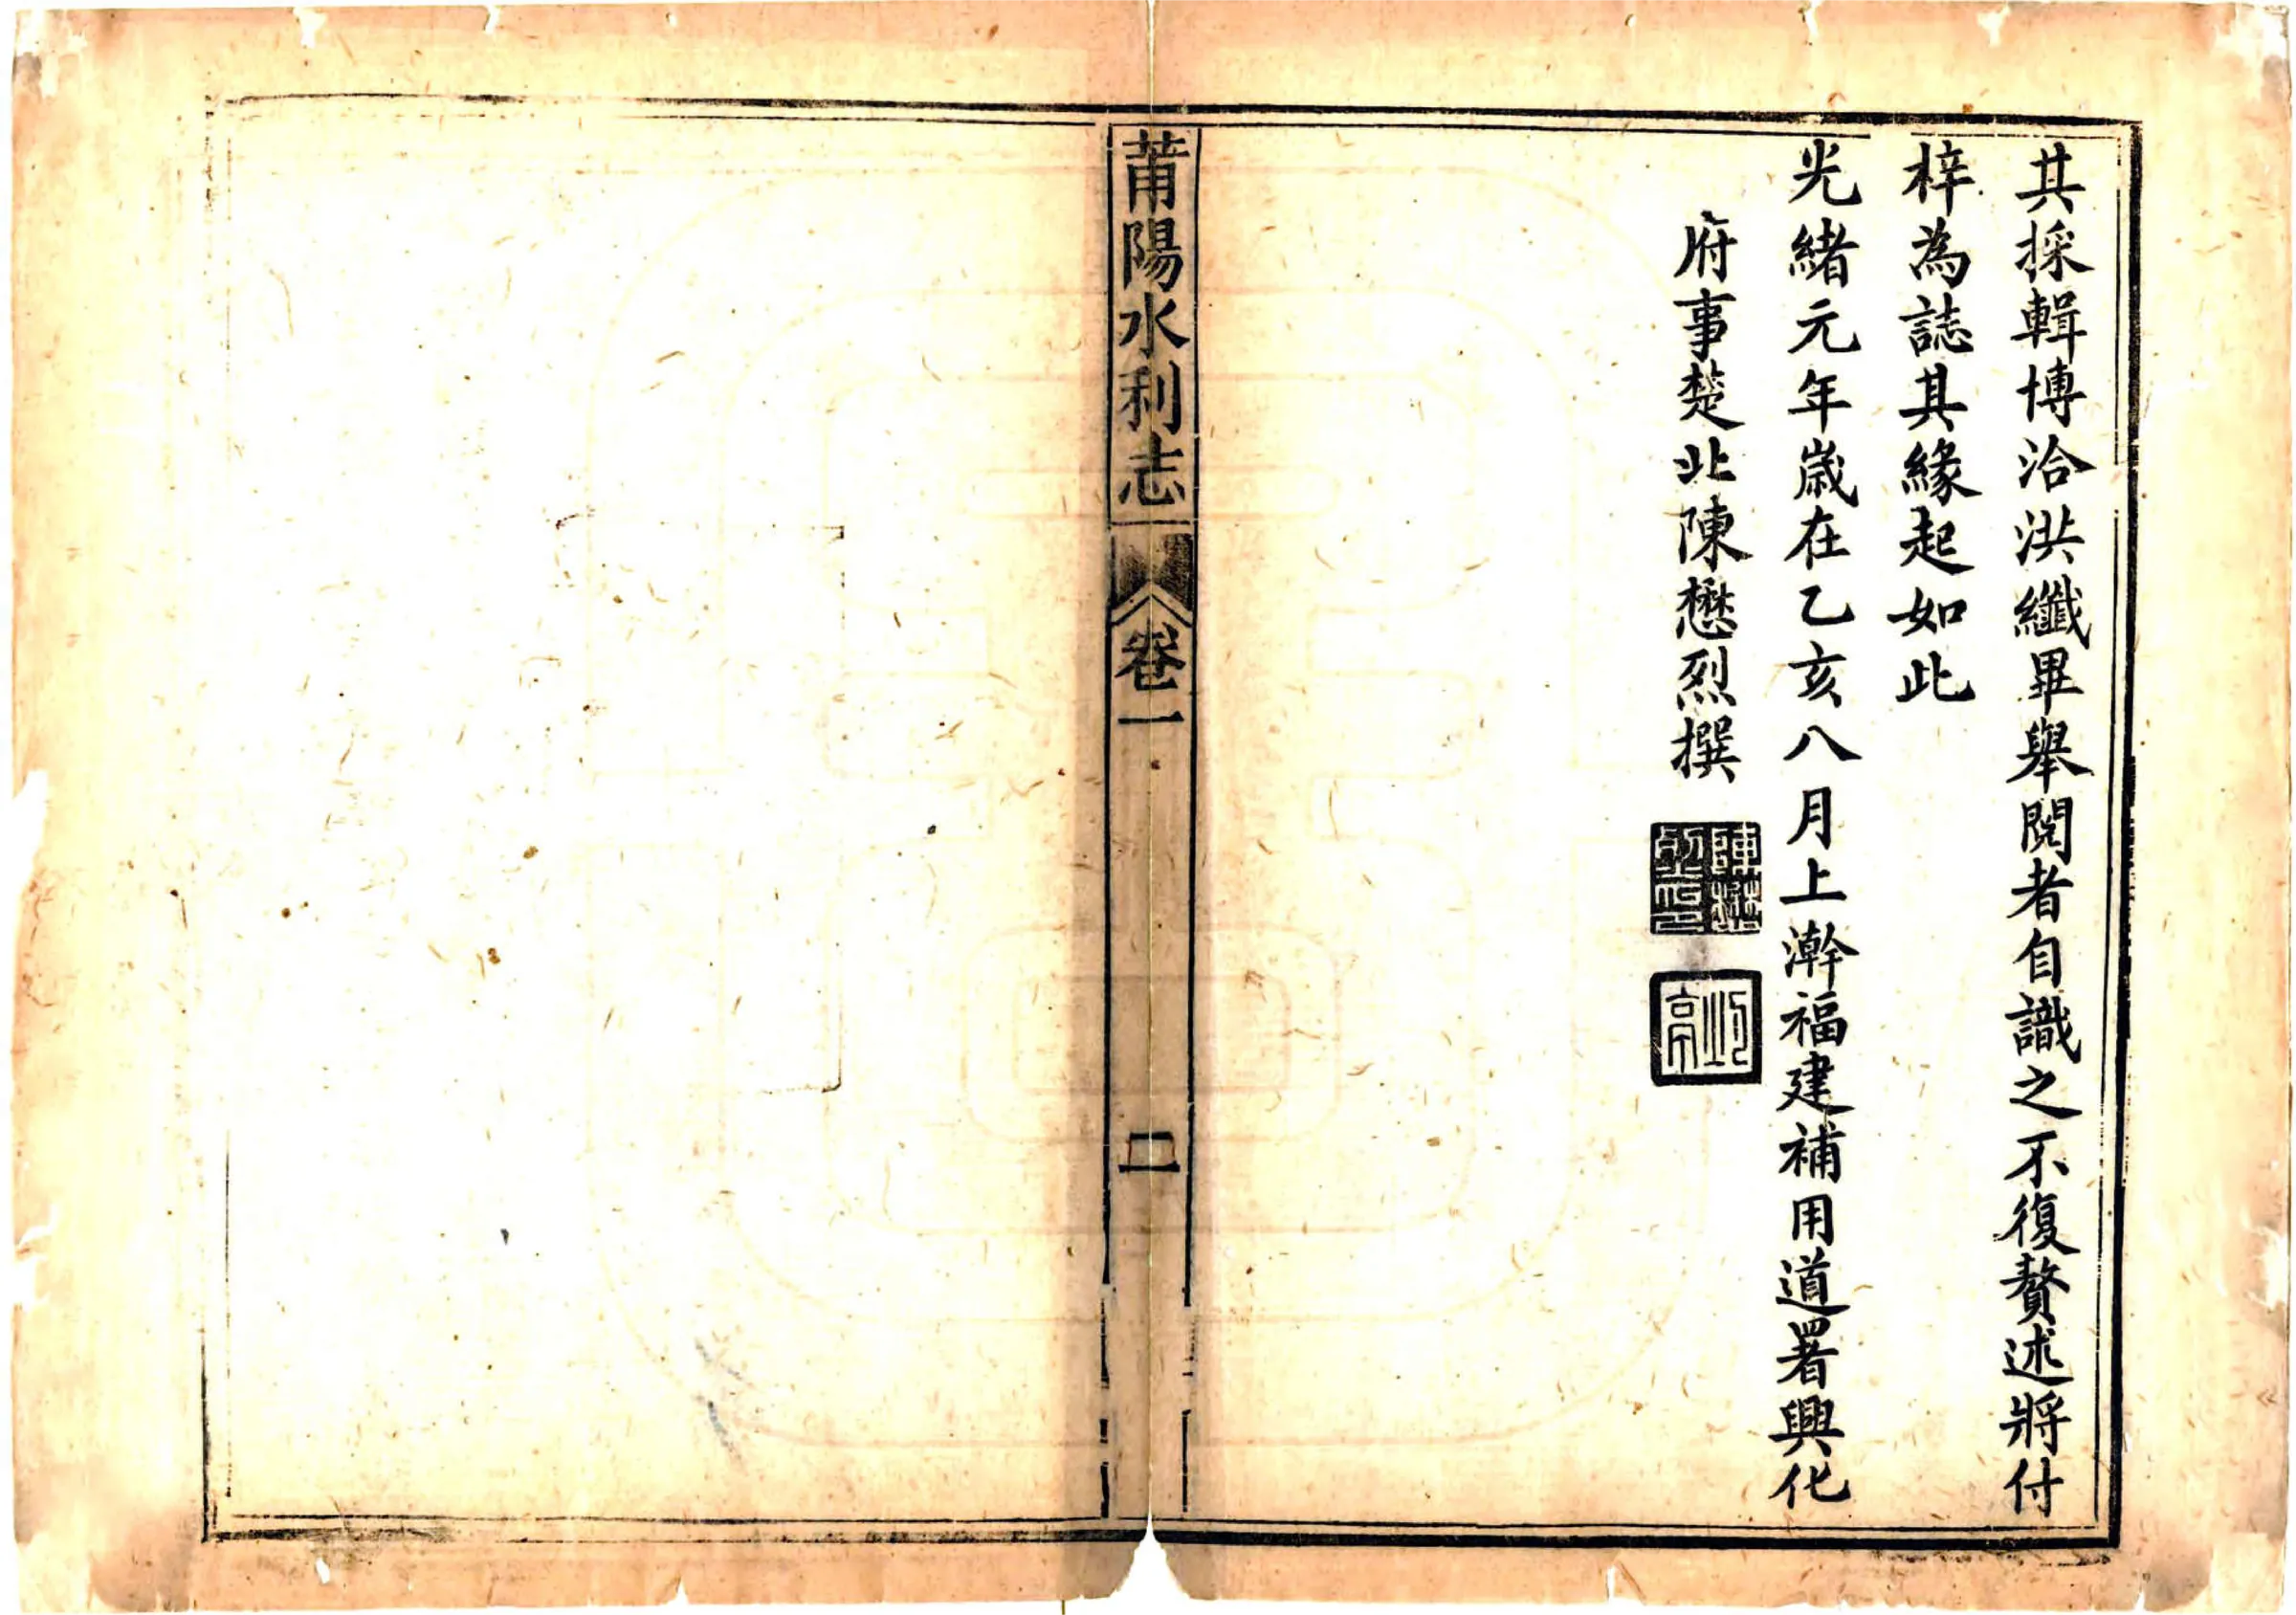 其採輯博洽洪纖畢舉閱者自識之不復贅述將付
梓為誌其緣起如此
光緒元年歲在乙亥八月上澣福建補用道署興化
府事楚北陳懋烈撰
陳懋烈印
莆陽水利志
卷一
二